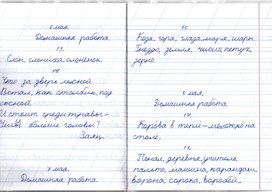 5 мая.
Домашняя работа.
13.
Слон, слониха, слонёнок.
14.
Что за зверь лесной
Встал, как столбик, под
сосной.
И стоит среди травы-
Уши больше головы?
Заяц.
7 мая.
Домашняя работа.
15.
Коза, гора, глаза, моря, шары.
Гнездо, земля, числа, петух,
зерно.
8 мая.
Домашняя работа.
16.
Корова в тепле - молоко на
столе.
17.
Пенал, деревня, учитель,
пальто, машина, карандаш,
ворона, сорока, воробей.